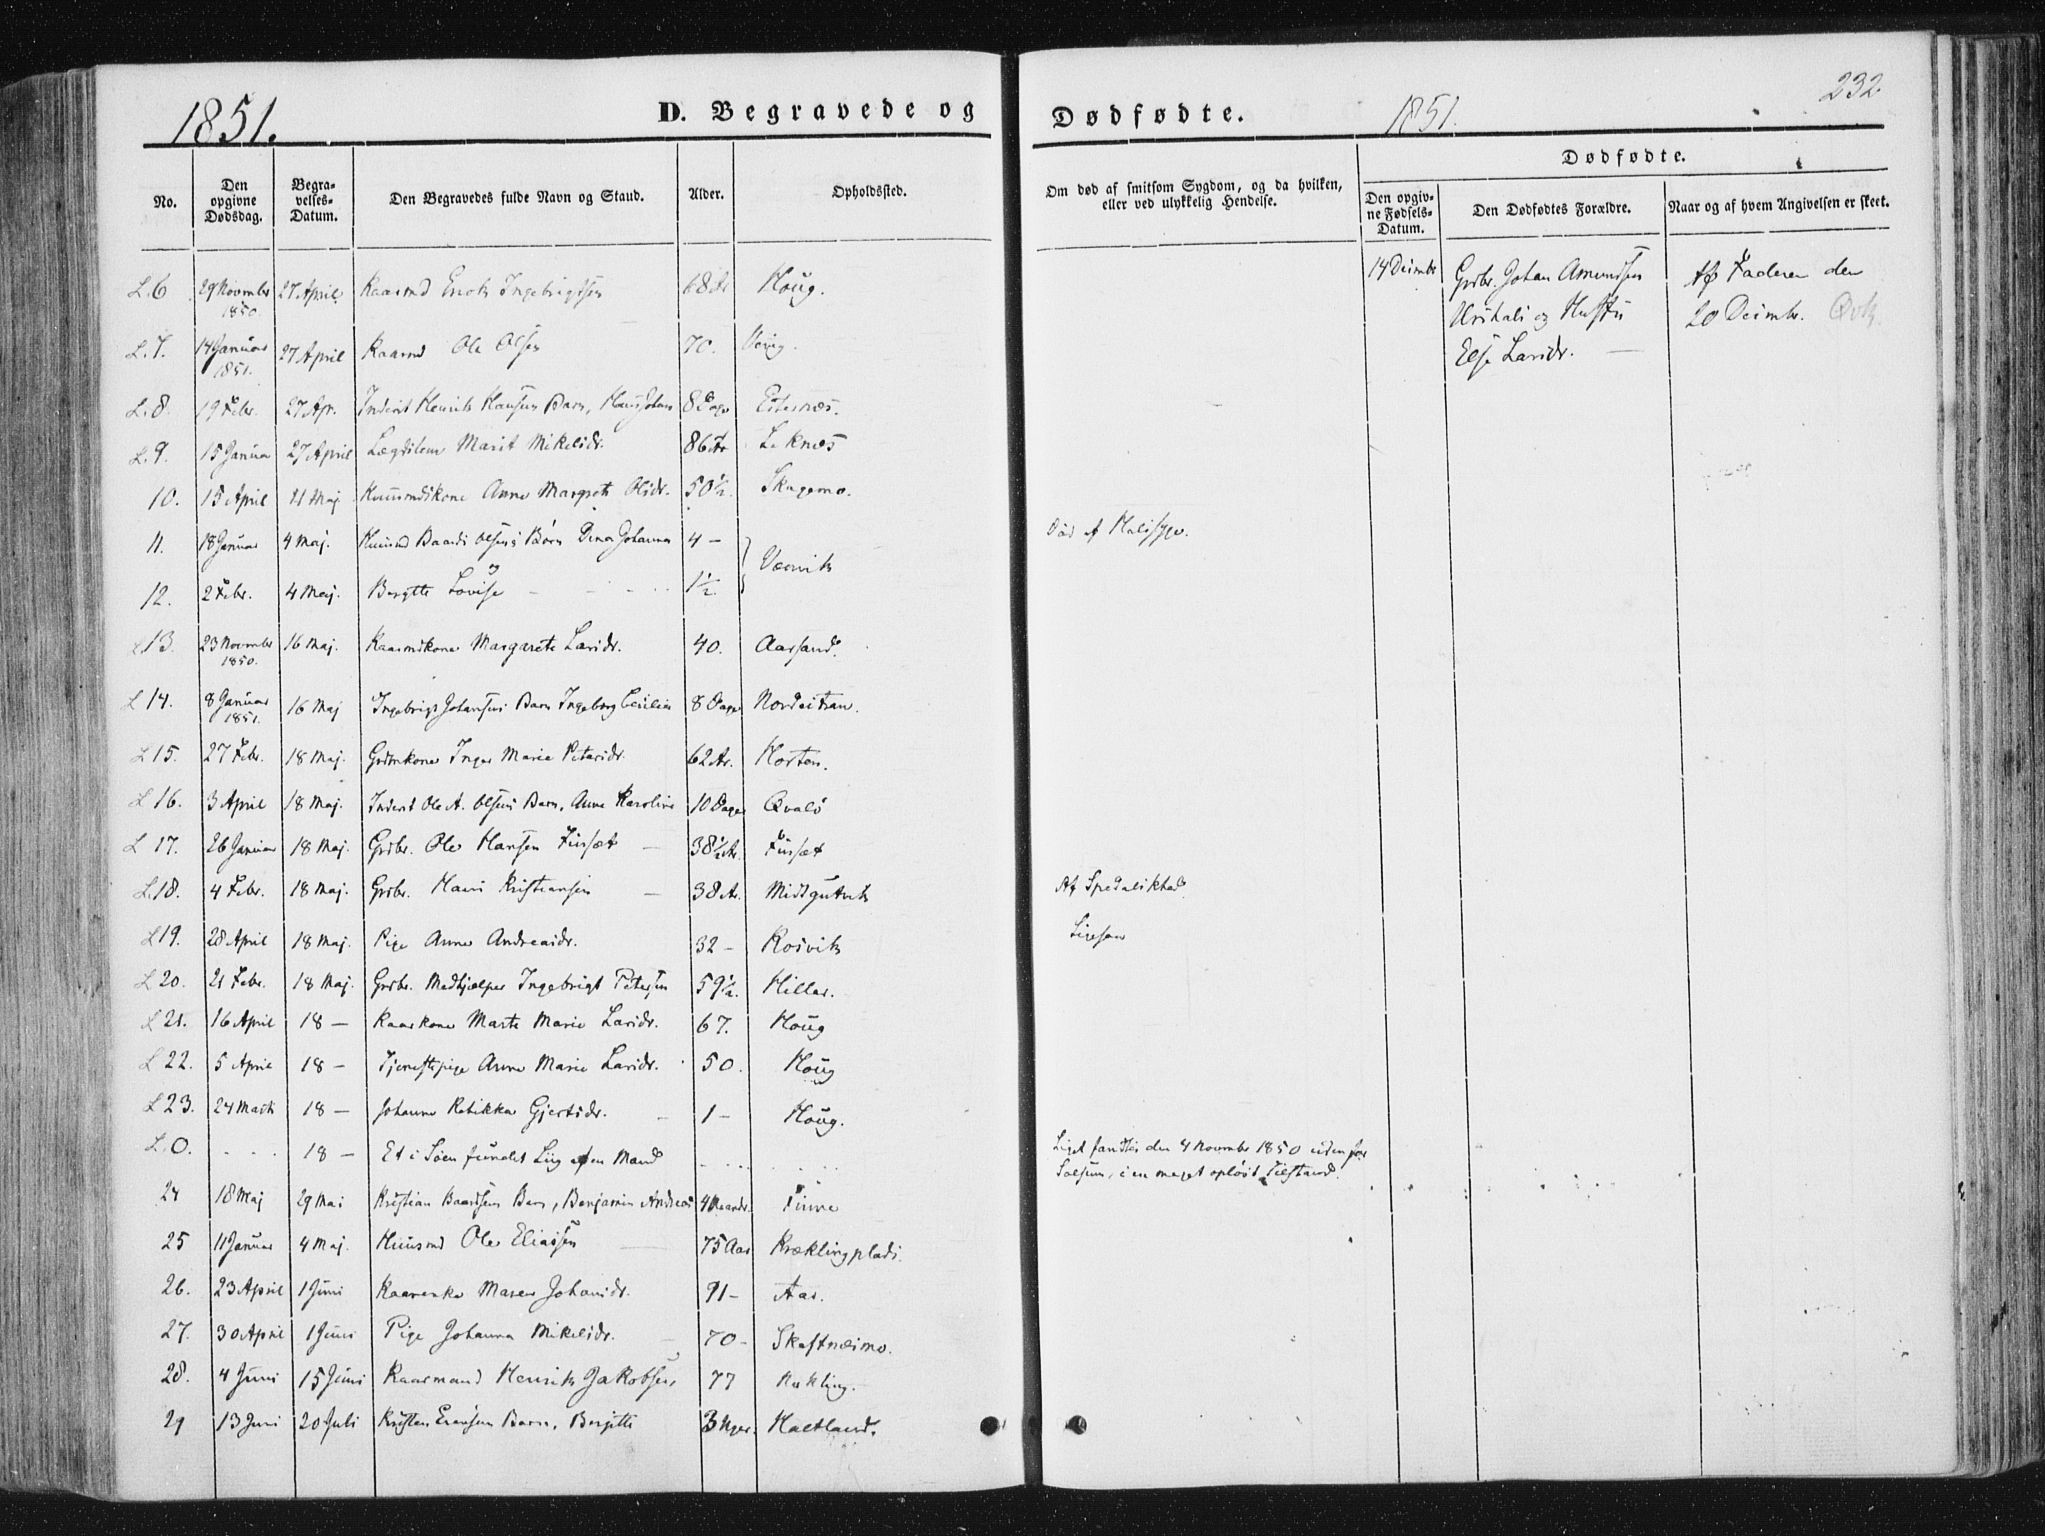 1851.
D. Begravede og
Dødfødte.
1851.
232
No.
Den opgivne Dødsdag.
Begravelses-Datum.
Den Begravedes fulde Navn og Stand.
Alder.
Opholdssted.
Om død af smitsom Sygdom, og da hvilken, eller ved ulykkelig Hendelse.
Dødfødte.
Den opgivne Fødsels-Datum.
Den Dødfødtes Forældre.
Naar og af hvem Angivelsen er skeet.
L.6 29 Novembr 1850. 27 April Kaarmd Enok Ingebrigtsen 68 Ar Houg.
L.7. 14 Januar 1851. 27 April Kaarmd Ole Olsen 70.
L.8. 19 Febr. 27 Ap. Inderst Henrik Hansens Barn, Hans Johan 8 Dage
L.9. 15 Januar 27 April Lægdslem Marit Mikelsdr. 86 Ar Leknæs
10. 15 April 4 Maj Huusmdskone Anne Margrete Olsdr. 50½. Skagemo.
11. 18 Januar 4 Maj. Huusmd Baard Olsens Børn Dina Johanna 4 –
12. 2 Febr. 4 Maj. Bergitte Lovise 1½.
13. 23 Novembr 1850. 16 Maj. Kaarmdkone Margarete Larsdr. 40. Aarsand.
L 14. 8 Januar 1851. 16 Maj Ingebrigt Johansens Barn Ingeborg Cecilia 8 Dage
L 15. 27 Febr. 18 Maj. Grdmkone Inger Maria Petersdr. 62 Ar. Horten.
L 16. 3 April 18 Maj. Inderst Ole A. Olsens Barn, Anne Karoline 10 Dage Qvalø
L 17. 26 Januar 18 Maj. Grdbr. Ole Hansen Finsæt 38½ Ar. Finsæt
L.18. 4 Febr. 18 Maj. Grdbr. Hans Kristiansen 38 Ar.
L 19. 28 April 18 Maj. Pige Anne Andreasdr. 32 – Rosvik
L 20. 21 Febr. 18 Maj. Grdbr. Medhjælper Ingebrigt Petersen 59½. Hiller.
L 21. 16 April 18 – Kaarkone Marte Marie Larsdr. 67. Houg
L 22. 5 April 18 – Tjenestepige Anne Marie Larsdr. 50. Houg
L 23. 24 Marts 18 – Johanna Rebikka Gjertsdr. 1 – Houg.
L.0. . . . 18 – Et i Søen fundet Liig af en Mand . . . .
24 18 Maj 29 Mai Kristian Baardsens Barn, Benjamin Andreas 4 Maander. Finne
25 11 Januar 4 Maj. Huusmd Ole Eliassen 75 Aar Kræklingplads.
26. 23 April 1 Juni Kaarenke Maren Johansdr. 91 – Aas.
27. 30 April 1 Juni Pige Johanna Mikelsdr. 70 –
28. 4 Juni 15 Juni Kaarmand Henrik Jakobsen 77
29 13 Juni 20 Juli Kristen Barn, Bergitte 3 Uger.
Død af Halssyge.
Af Spedalskhed
Ligesaa
Liget fandtes den 4 Novembr 1850 udenfor
i en meget opløst Tilstand.
14 Decembr Grdbr. Johan Amundsen
og Hustru
Else Larsdr. –
Af Faderen den
20 Decembr.